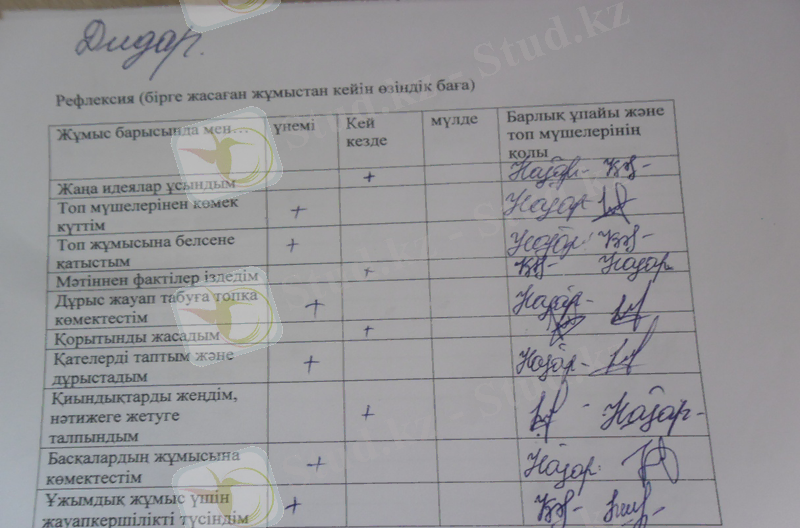 Дидар.
Рефлексия (бірге жасаған жұмыстан кейін өзіндік баға)
Жұмыс барысында мен… үнемі Кей кезде мүлде Барлық ұпайы және топ мүшелерінің қолы
Жаңа идеялар ұсындым + Назар-
Топ мүшелерінен көмек
күттім + Назар
Топ жұмысына белсене
қатыстым + Назар
Мәтіннен фактілер іздедім + Назар
Дұрыс жауап табуға топқа
көмектестім + Назар-
Қорытынды жасадым +
Қателерді таптым және
дұрыстадым + Назар-
Қиындықтарды жеңдім,
нәтижеге жетуге
талпындым + Назар-
Басқалардың жұмысына
көмектестім + Назар
Ұжымдық жұмыс үшін
жауапкершілікті түсіндім +
Stud.kz - Stud.kz